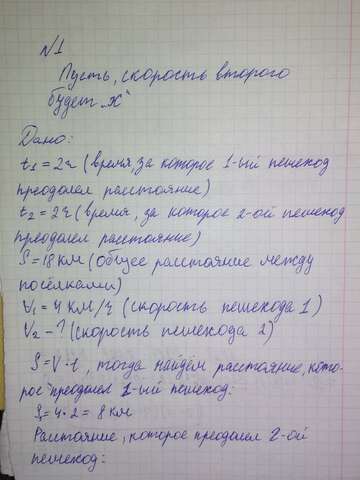 №1
Пусть, скорость второго
будет "X"
Дано:
t₁ = 2ч (время, за которое 1-ый пешеход
преодолел расстояние)
t₂ = 2ч (время, за которое 2-ой пешеход
преодолел расстояние)
S = 18 км (общее расстояние между
посёлками)
V₁ = 4 км/ч (скорость пешехода 1)
V₂ - ? (скорость пешехода 2)
S = V · t, тогда найдём расстояние, кото-
рое преодолел 1-ый пешеход:
S₁ = 4 · 2 = 8 км
Расстояние, которое преодолел 2-ой
пешеход: